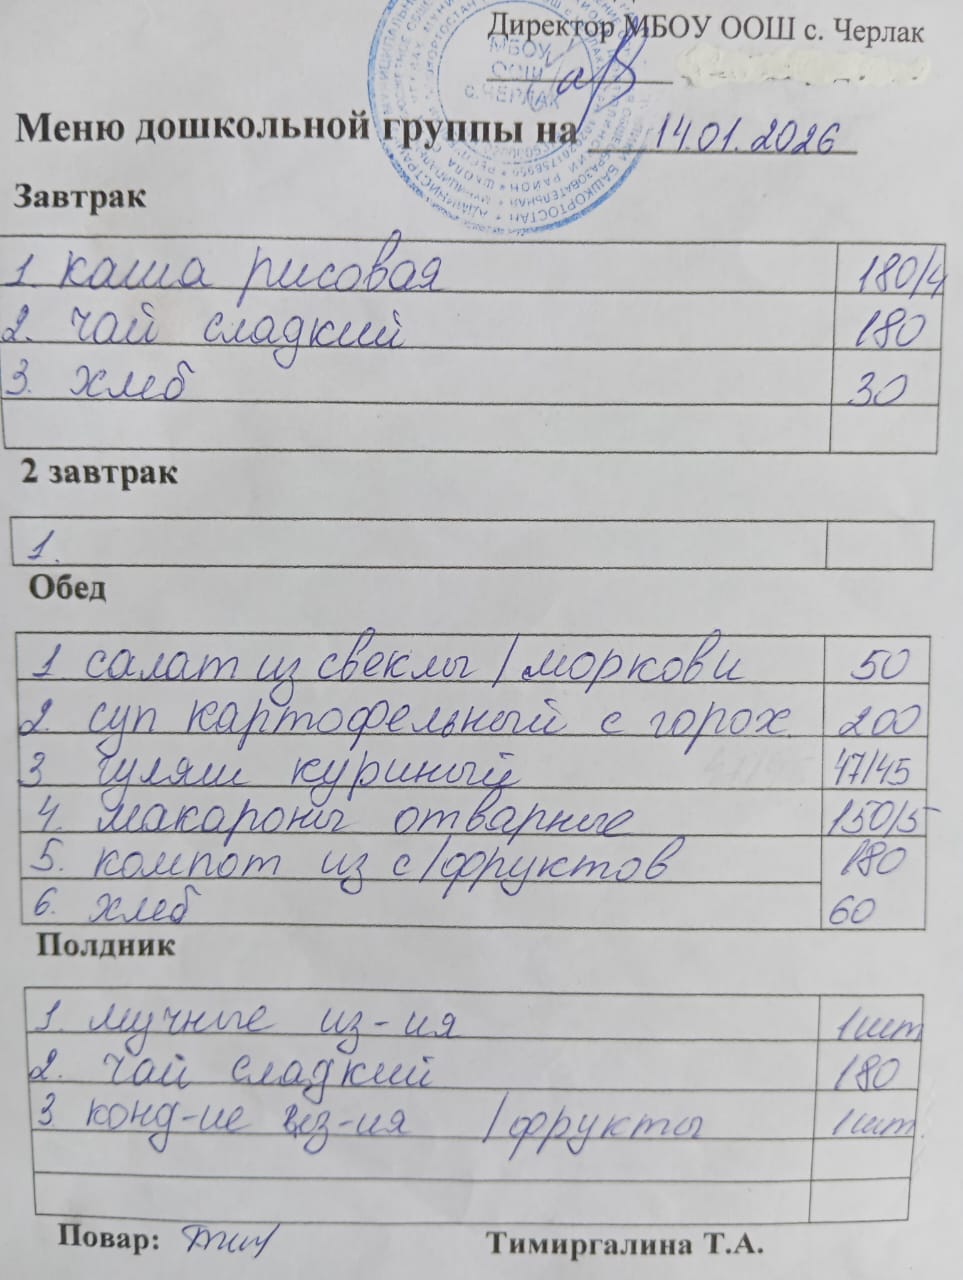 Директор МБОУ ООШ с. Черлак
МБОУ
ООШ
с. ЧЕРЛАК
Меню дошкольной группы на 14.01.2026
Завтрак
1. каша рисовая 180/4
2. чай сладкий 180
3. хлеб 30
2 завтрак
1.
Обед
1. салат из свеклы / моркови 50
2. суп картофельный с горох. 200
3 гуляш куриный 47/45
4. макароны отварные 150/5
5. компот из с/фруктов 180
6. хлеб 60
Полдник
1. мучные из-ия 1шт
2. чай сладкий 180
3. конд-ие из-ия / фрукты 1шт.
Повар: Тимиргалина Т.А.